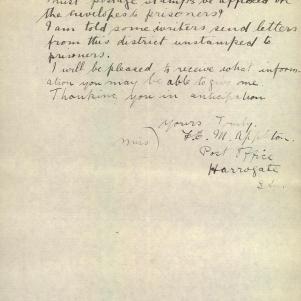 Must postage stamps be affixed on
the envelopes to prisoners?
I am told some writers send letters
from this district unstamped to
prisoners.
I will be pleased to receive what inform-
ation you may be able to give me.
Thanking you in anticipation
Yours Truly.
(Miss) E. M. Appleton
Post Office
Harrogate